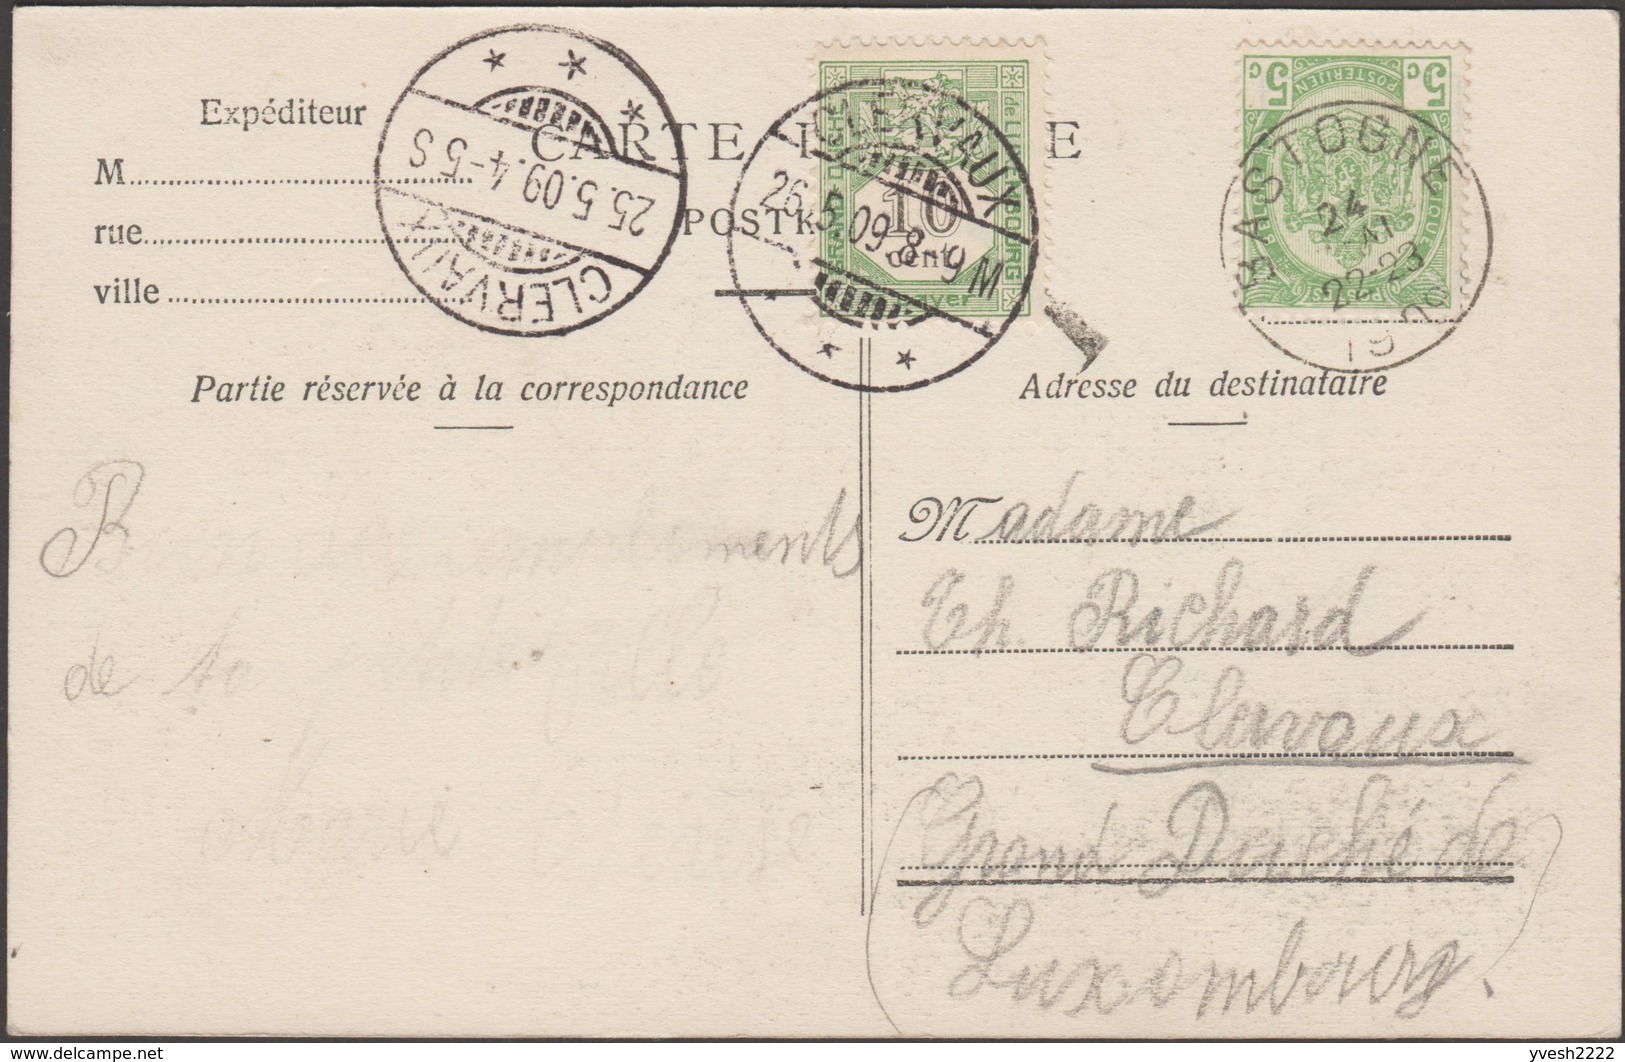 Expéditeur
M
rue
ville
CARTE
POSTK
CLERVAUX
25.5.09 4-5 S
GRAND DUCHÉ
de L
BOURG
10
cent
ayer
CLERVAUX
26.5.09 8-9 M
5c
POSTERIJEN
c5
BELGIQUE
BASTOGNE
24
MAI
22-23
1909
Partie réservée à la correspondance
Adresse du destinataire
de ta
Madame
Th. Richard
Clavaux
Grand Duché de
Luxembourg.
www.delcampe.net
yvesh2222